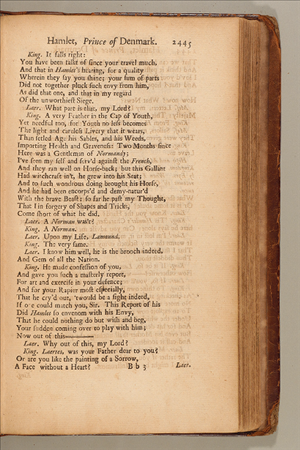 Hamlet, Prince of Denmark. 2445
King. It falls right:
You have been talkt of since your travel much,
And that in Hamlet's hearing, for a quality
Wherein they say you shine; your sum of parts
Did not together pluck such envy from him,
As did that one, and that in my regard
Of the unworthiest Siege.
Laer. What part is that, my Lord?
King. A very Feather in the Cap of Youth,
Yet needful too, for Youth no less becomes
The light and careless Livery that it wears,
Than setled Age his Sables, and his Weeds,
Importing Health and Graveness: Two Months since
Here was a Gentleman of Normandy;
I've seen my self and serv'd against the French,
And they ran well on Horse-back; but this Gallant
Had witchcraft in't, he grew into his Seat;
And to such wondrous doing brought his Horse,
And he had been encorps'd and demy-natur'd
With the brave Beast: so far he past my Thought,
That I in forgery of Shapes and Tricks,
Come short of what he did.
Laer. A Norman was't?
King. A Norman.
Laer. Upon my Life, Lamound.
King. The very same.
Laer. I know him well, he is the brooch indeed,
And Gem of all the Nation.
King. He made confession of you,
And gave you such a masterly report,
For art and exercise in your defence;
And for your Rapier most especially,
That he cry'd out, 'twould be a sight indeed,
If one could match you, Sir. This Report of his
Did Hamlet so envenom with his Envy,
That he could nothing do but wish and beg,
Your sudden coming over to play with him;
Now out of this
Laer. Why out of this, my Lord?
King. Laertes, was your Father dear to you?
Or are you like the painting of a Sorrow,
A Face without a Heart? Bb 3 Laer.